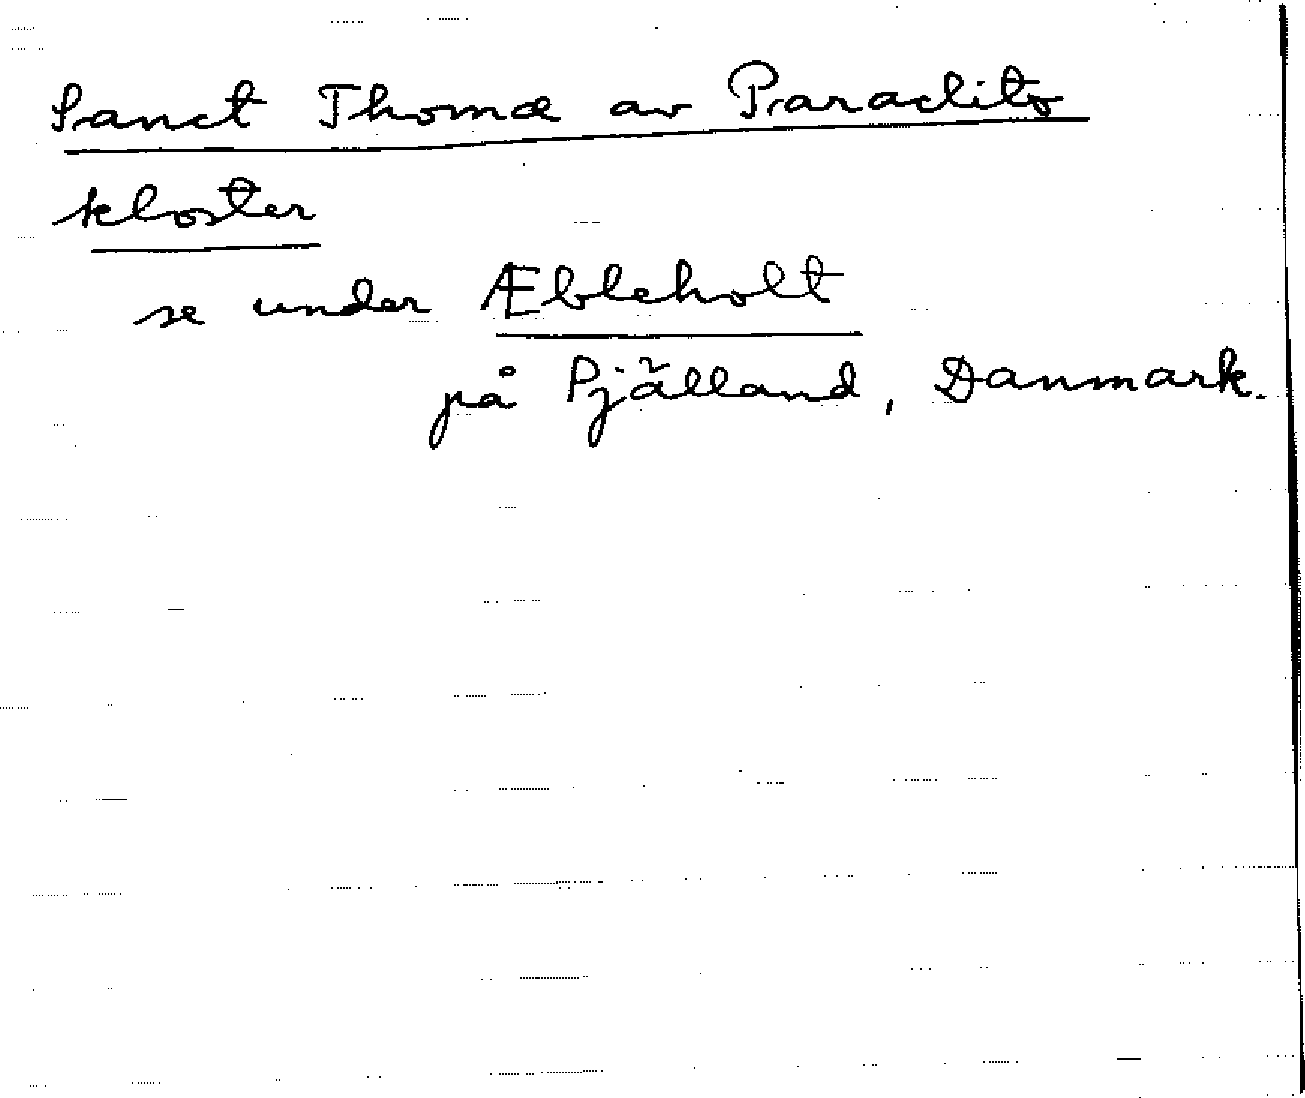 Sanct Thomæ av Paraclito
kloster
se under Æbleholt
på Själland, Danmark.